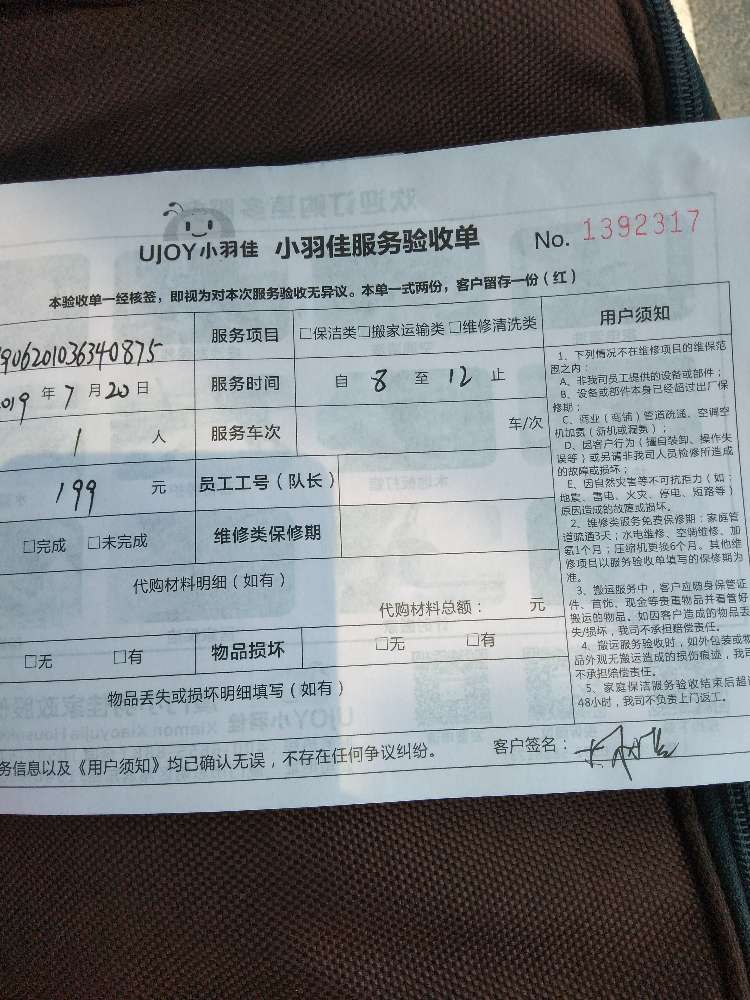 UJOY小羽佳 小羽佳服务验收单 No. 1392317
本验收单一经核签，即视为对本次服务验收无异议。本单一式两份，客户留存一份（红）
90620103634 0875 服务项目 □保洁类□搬家运输类□维修清洗类
019 年 7 月 20 日 服务时间 自 8 至 12 止
1 人 服务车次 车/次
199 元 员工工号（队长）
□完成 □未完成 维修类保修期
代购材料明细（如有）
代购材料总额： 元
□无 □有 物品损坏 □无 □有
物品丢失或损坏明细填写（如有）
务信息以及《用户须知》均已确认无误，不存在任何争议纠纷。 客户签名：
用户须知
1、下列情况不在维修项目的维保范
围之内：
A、非我司员工提供的设备或部件；
B、设备或部件本身已经超过出厂保
修期；
C、师业（商铺）管道疏通、空调空
机加氨（新机或漏氨）；
D、因客户行为（擅自装卸、操作失
误等）或另请非我司人员检修所造成
的故障或损坏；
E、因自然灾害等不可抗拒力（如：
地震、雷电、火灾、停电、短路等）
原因造成的故障或损坏。
2、维修类服务免费保修期：家庭管
道疏通3天；水电维修、空调维修、加
氨1个月；压缩机更换6个月。其他维
修项目以服务验收单填写的保修期为
准。
3、搬运服务中，客户应随身保管证
件、首饰、现金等贵重物品并看管好
搬运的物品。如因客户造成的物品丢
失/损坏，我司不承担赔偿责任。
4、搬运服务验收时，如外包装或物
品外观无搬运造成的损伤痕迹，我司
不承担赔偿责任。
5、家庭保洁服务验收结束后超过
48小时，我司不负责上门返工。